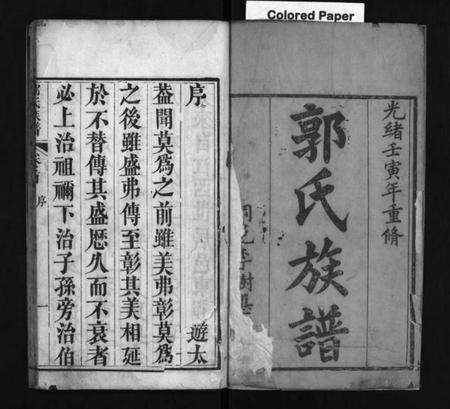 Colored Paper
光緒壬寅年重脩
郭氏族譜
序
遊太
葢聞莫為之前雖美弗彰莫為
之後雖盛弗傳至彰其美相延
於不替傳其盛歷久而不衰者
必上治祖禰下治子孫旁治伯
序